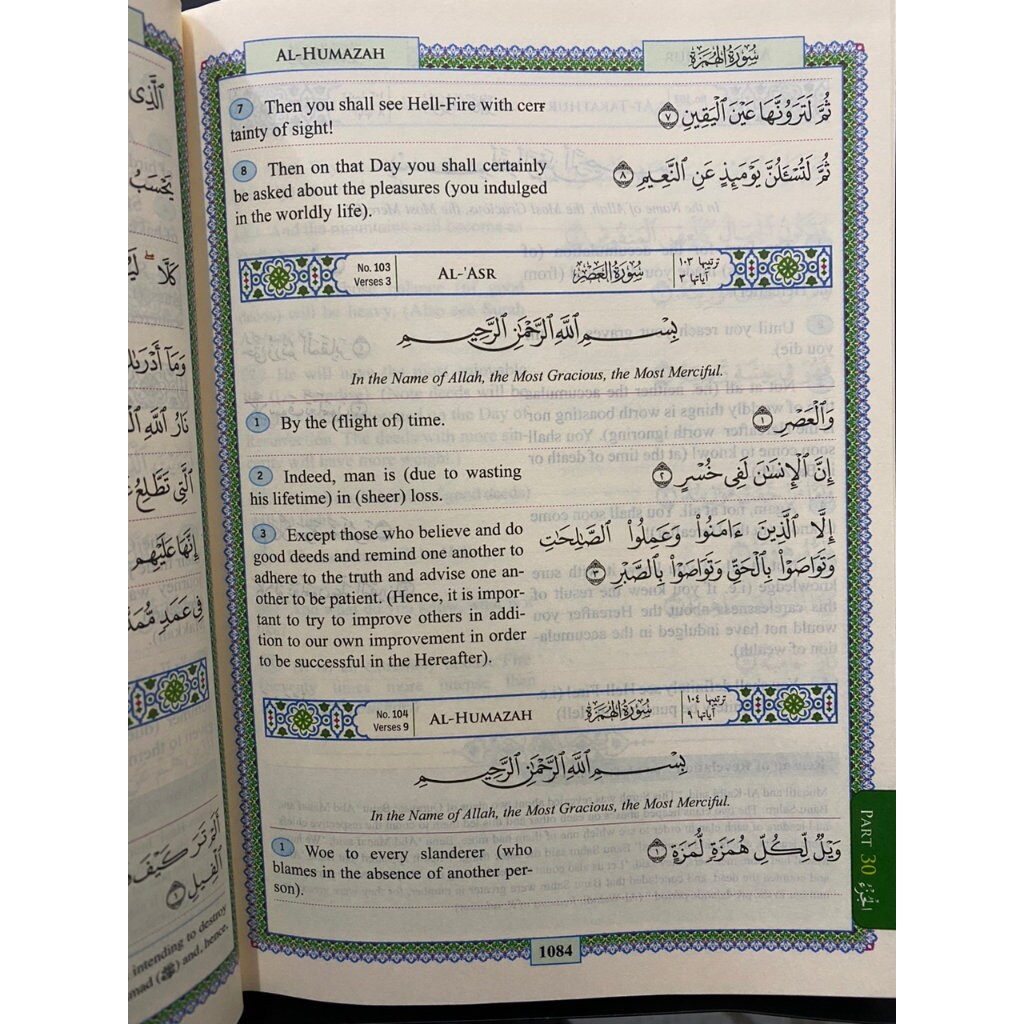 AL-HUMAZAH
سُورَةُ الهُمَزَةِ
7 Then you shall see Hell-Fire with cer-
tainty of sight!
ثُمَّ لَتَرَوُنَّهَا عَيْنَ ٱلْيَقِينِ ٧
8 Then on that Day you shall certainly
be asked about the pleasures (you indulged
in the worldly life).
ثُمَّ لَتُسْـَٔلُنَّ يَوْمَئِذٍ عَنِ ٱلنَّعِيمِ ٨
No. 103
Verses 3
AL-'ASR
سُورَةُ العَصْرِ
ترتيبها ١٠٣
آياتها ٣
بِسْمِ ٱللَّهِ ٱلرَّحْمَٰنِ ٱلرَّحِيمِ
In the Name of Allah, the Most Gracious, the Most Merciful.
1 By the (flight of) time.
وَٱلْعَصْرِ ١
2 Indeed, man is (due to wasting
his lifetime) in (sheer) loss.
إِنَّ ٱلْإِنسَٰنَ لَفِى خُسْرٍ ٢
3 Except those who believe and do
good deeds and remind one another to
adhere to the truth and advise one an-
other to be patient. (Hence, it is impor-
tant to try to improve others in addi-
tion to our own improvement in order
to be successful in the Hereafter).
إِلَّا ٱلَّذِينَ ءَامَنُوا۟ وَعَمِلُوا۟ ٱلصَّٰلِحَٰتِ
وَتَوَاصَوْا۟ بِٱلْحَقِّ وَتَوَاصَوْا۟ بِٱلصَّبْرِ ٣
No. 104
Verses 9
AL-HUMAZAH
سُورَةُ الهُمَزَةِ
ترتيبها ١٠٤
آياتها ٩
بِسْمِ ٱللَّهِ ٱلرَّحْمَٰنِ ٱلرَّحِيمِ
In the Name of Allah, the Most Gracious, the Most Merciful.
1 Woe to every slanderer (who
blames in the absence of another per-
son).
وَيْلٌ لِّكُلِّ هُمَزَةٍ لُّمَزَةٍ ١
PART 30 الجزء
1084
ٱلَّذِى
يَحْسَبُ
كَلَّا ۖ
وَمَآ أَدْرَىٰكَ
نَارُ ٱللَّهِ
ٱلَّتِى تَطَّلِعُ
إِنَّهَا عَلَيْهِم
فِى عَمَدٍ
أَلَمْ تَرَ كَيْفَ
ٱلْفِيلِ ١
intending to destroy
and, hence,